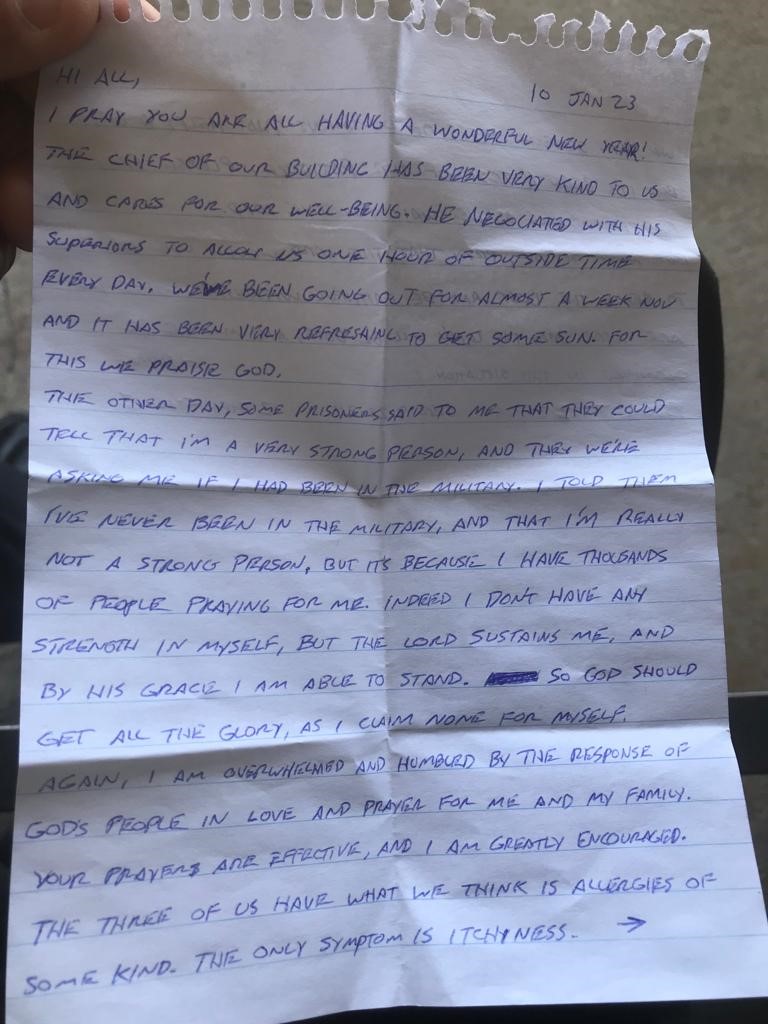 HI ALL,
10 JAN 23
I PRAY YOU ARE ALL HAVING A WONDERFUL NEW YEAR!
THE CHIEF OF OUR BUILDING HAS BEEN VERY KIND TO US
AND CARES FOR OUR WELL-BEING. HE NEGOCIATED WITH HIS
SUPERIORS TO ALLOW US ONE HOUR OF OUTSIDE TIME
EVERY DAY. WE'VE BEEN GOING OUT FOR ALMOST A WEEK NOW
AND IT HAS BEEN VERY REFRESHING TO GET SOME SUN. FOR
THIS WE PRAISE GOD.
THE OTHER DAY, SOME PRISONERS SAID TO ME THAT THEY COULD
TELL THAT I'M A VERY STRONG PERSON, AND THEY WE'RE
ASKING ME IF I HAD BEEN IN THE MILITARY. I TOLD THEM
I'VE NEVER BEEN IN THE MILITARY, AND THAT I'M REALLY
NOT A STRONG PERSON, BUT IT'S BECAUSE I HAVE THOUSANDS
OF PEOPLE PRAYING FOR ME. INDEED I DON'T HAVE ANY
STRENGTH IN MYSELF, BUT THE LORD SUSTAINS ME, AND
BY HIS GRACE I AM ABLE TO STAND. SO GOD SHOULD
GET ALL THE GLORY, AS I CLAIM NONE FOR MYSELF.
AGAIN, I AM OVERWHELMED AND HUMBLED BY THE RESPONSE OF
GOD'S PEOPLE IN LOVE AND PRAYER FOR ME AND MY FAMILY.
YOUR PRAYERS ARE EFFECTIVE, AND I AM GREATLY ENCOURAGED.
THE THREE OF US HAVE WHAT WE THINK IS ALLERGIES OF
SOME KIND. THE ONLY SYMPTOM IS ITCHYNESS. →